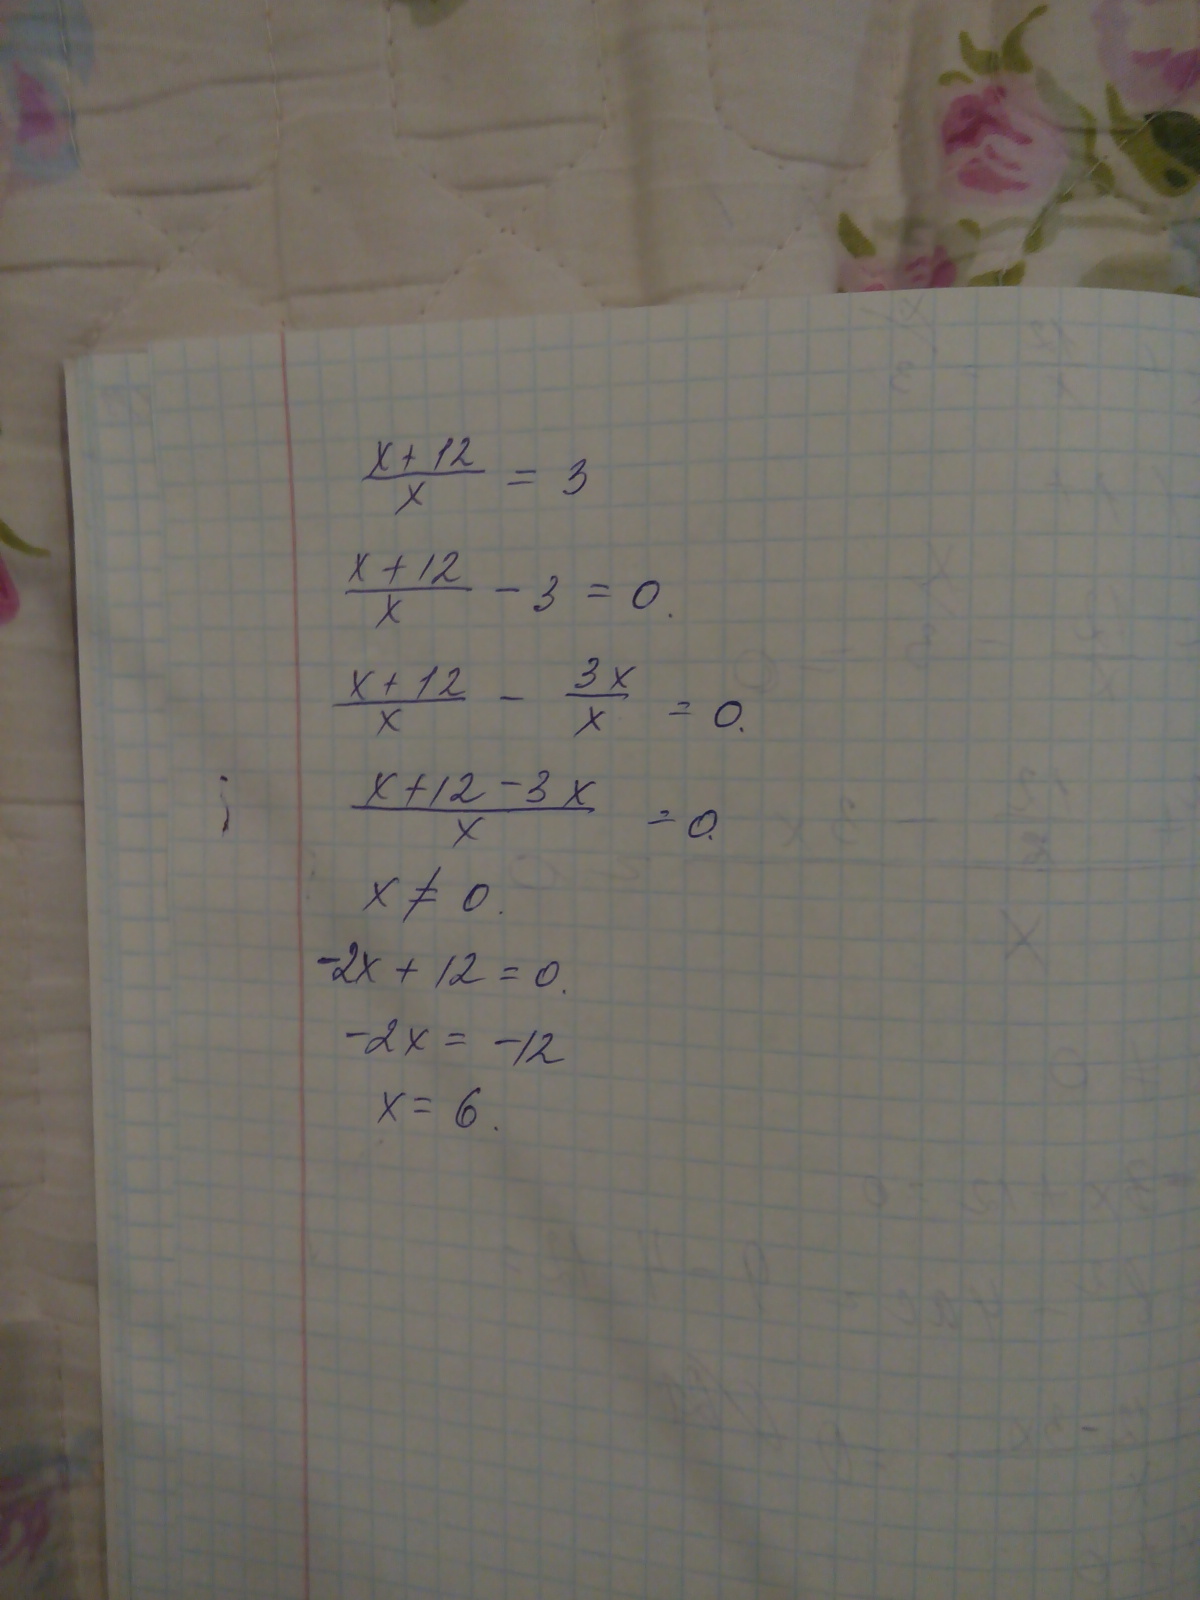 (x+12)/x = 3
(x+12)/x - 3 = 0.
(x+12)/x - 3x/x = 0.
(x+12-3x)/x = 0.
x ≠ 0.
-2x + 12 = 0.
-2x = -12
x = 6.